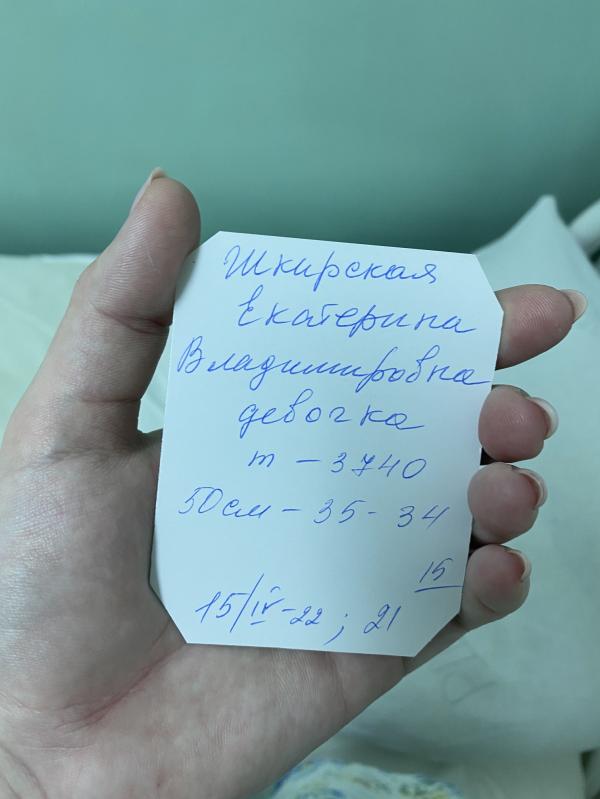 Шкирская
Екатерина
Владимировна
девочка
m - 3740
50см - 35 - 34
15/IV-22; 21 15